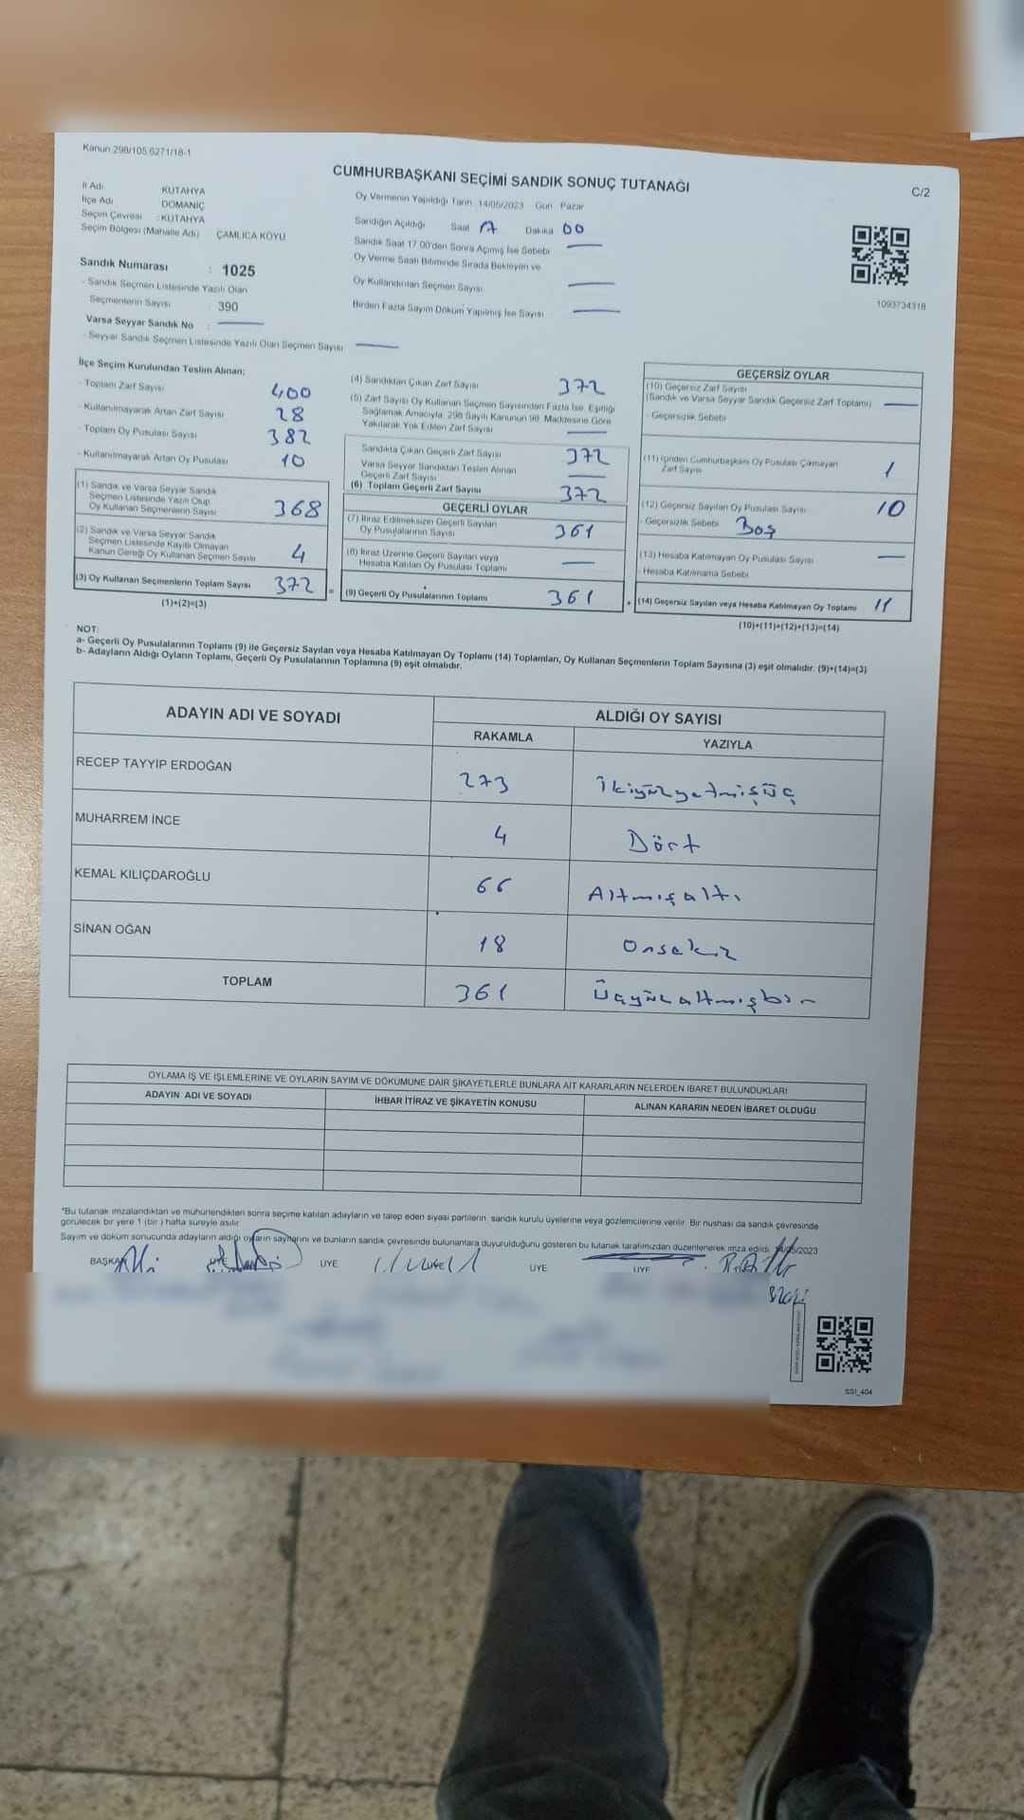 Kanun 298/105 6271/18-1
CUMHURBAŞKANI SEÇİMİ SANDIK SONUÇ TUTANAĞI
C/2
İl Adı KÜTAHYA
İlçe Adı DOMANİÇ
Seçim Çevresi : KÜTAHYA
Seçim Bölgesi (Mahalle Adı) ÇAMLICA KÖYÜ
Sandık Numarası : 1025
- Sandık Seçmen Listesinde Yazılı Olan
Seçmenlerin Sayısı : 390
Varsa Seyyar Sandık No :
- Seyyar Sandık Seçmen Listesinde Yazılı Olan Seçmen Sayısı
Oy Vermenin Yapıldığı Tarih 14/05/2023 Gün Pazar
Sandığın Açıldığı Saat 17 Dakika 00
Sandık Saat 17.00'den Sonra Açılmış İse Sebebi
Oy Verme Saati Bitiminde Sırada Bekleyen ve
Oy Kullandırılan Seçmen Sayısı
Birden Fazla Sayım Döküm Yapılmış İse Sayısı
1093734318
İlçe Seçim Kurulundan Teslim Alınan;
- Toplam Zarf Sayısı 400
- Kullanılmayarak Artan Zarf Sayısı 28
- Toplam Oy Pusulası Sayısı 382
- Kullanılmayarak Artan Oy Pusulası 10
(1) Sandık ve Varsa Seyyar Sandık
Seçmen Listesinde Yazılı Olup
Oy Kullanan Seçmenlerin Sayısı 368
(2) Sandık ve Varsa Seyyar Sandık
Seçmen Listesinde Kayıtlı Olmayan
Kanun Gereği Oy Kullanan Seçmen Sayısı 4
(3) Oy Kullanan Seçmenlerin Toplam Sayısı 372
(1)+(2)=(3)
(4) Sandıktan Çıkan Zarf Sayısı 372
(5) Zarf Sayısı Oy Kullanan Seçmen Sayısından Fazla İse, Eşitliği
Sağlamak Amacıyla, 298 Sayılı Kanunun 98. Maddesine Göre
Yakılarak Yok Edilen Zarf Sayısı
Sandıkta Çıkan Geçerli Zarf Sayısı 372
Varsa Seyyar Sandıktan Teslim Alınan
Geçerli Zarf Sayısı
(6) Toplam Geçerli Zarf Sayısı 372
GEÇERLİ OYLAR
(7) İtiraz Edilmeksizin Geçerli Sayılan
Oy Pusulalarının Sayısı 361
(8) İtiraz Üzerine Geçerli Sayılan veya
Hesaba Katılan Oy Pusulası Toplamı
= (9) Geçerli Oy Pusulalarının Toplamı 361
GEÇERSİZ OYLAR
(10) Geçersiz Zarf Sayısı
(Sandık ve Varsa Seyyar Sandık Geçersiz Zarf Toplamı)
- Geçersizlik Sebebi
(11) İçinden Cumhurbaşkanı Oy Pusulası Çıkmayan
Zarf Sayısı 1
(12) Geçersiz Sayılan Oy Pusulası Sayısı 10
- Geçersizlik Sebebi Boş
(13) Hesaba Katılmayan Oy Pusulası Sayısı
- Hesaba Katılmama Sebebi
+ (14) Geçersiz Sayılan veya Hesaba Katılmayan Oy Toplamı 11
(10)+(11)+(12)+(13)=(14)
NOT:
a- Geçerli Oy Pusulalarının Toplamı (9) ile Geçersiz Sayılan veya Hesaba Katılmayan Oy Toplamı (14) Toplamları, Oy Kullanan Seçmenlerin Toplam Sayısına (3) eşit olmalıdır. (9)+(14)=(3)
b- Adayların Aldığı Oyların Toplamı, Geçerli Oy Pusulalarının Toplamına (9) eşit olmalıdır.
ADAYIN ADI VE SOYADI ALDIĞI OY SAYISI
RAKAMLA YAZIYLA
RECEP TAYYİP ERDOĞAN 273 İkiyüzyetmişüç
MUHARREM İNCE 4 Dört
KEMAL KILIÇDAROĞLU 66 Altmışaltı
SİNAN OĞAN 18 Onsekiz
TOPLAM 361 Üçyüzaltmışbir
OYLAMA İŞ VE İŞLEMLERİNE VE OYLARIN SAYIM VE DÖKÜMÜNE DAİR ŞİKAYETLERLE BUNLARA AİT KARARLARIN NELERDEN İBARET BULUNDUKLARI
ADAYIN ADI VE SOYADI İHBAR İTİRAZ VE ŞİKAYETİN KONUSU ALINAN KARARIN NEDEN İBARET OLDUĞU
*Bu tutanak imzalandıktan ve mühürlendikten sonra seçime katılan adayların ve talep eden siyasi partilerin, sandık kurulu üyelerine veya gözlemcilerine verilir. Bir nüshası da sandık çevresinde
görülecek bir yere 1 (bir) hafta süreyle asılır.
Sayım ve döküm sonucunda adayların aldığı oyların sayılarını ve bunların sandık çevresinde bulunanlara duyurulduğunu gösteren bu tutanak tarafımızdan düzenlenerek imza edildi. 14/05/2023
BAŞKAN ÜYE ÜYE ÜYE
SSI_404